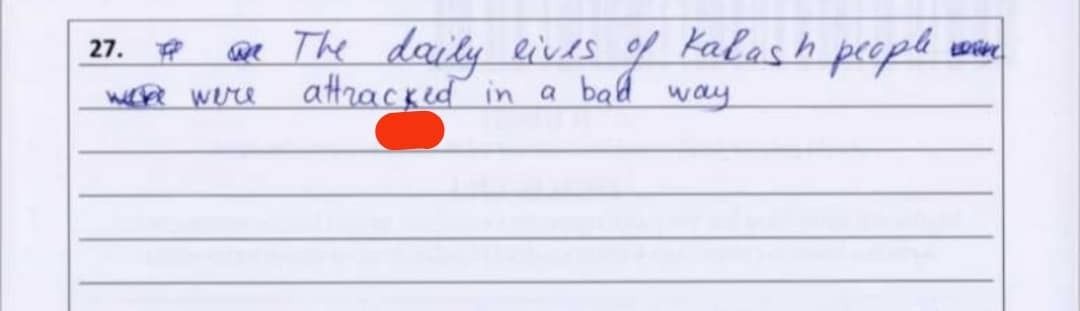 27. The daily lives of Kalash people
were attracked in a bad way